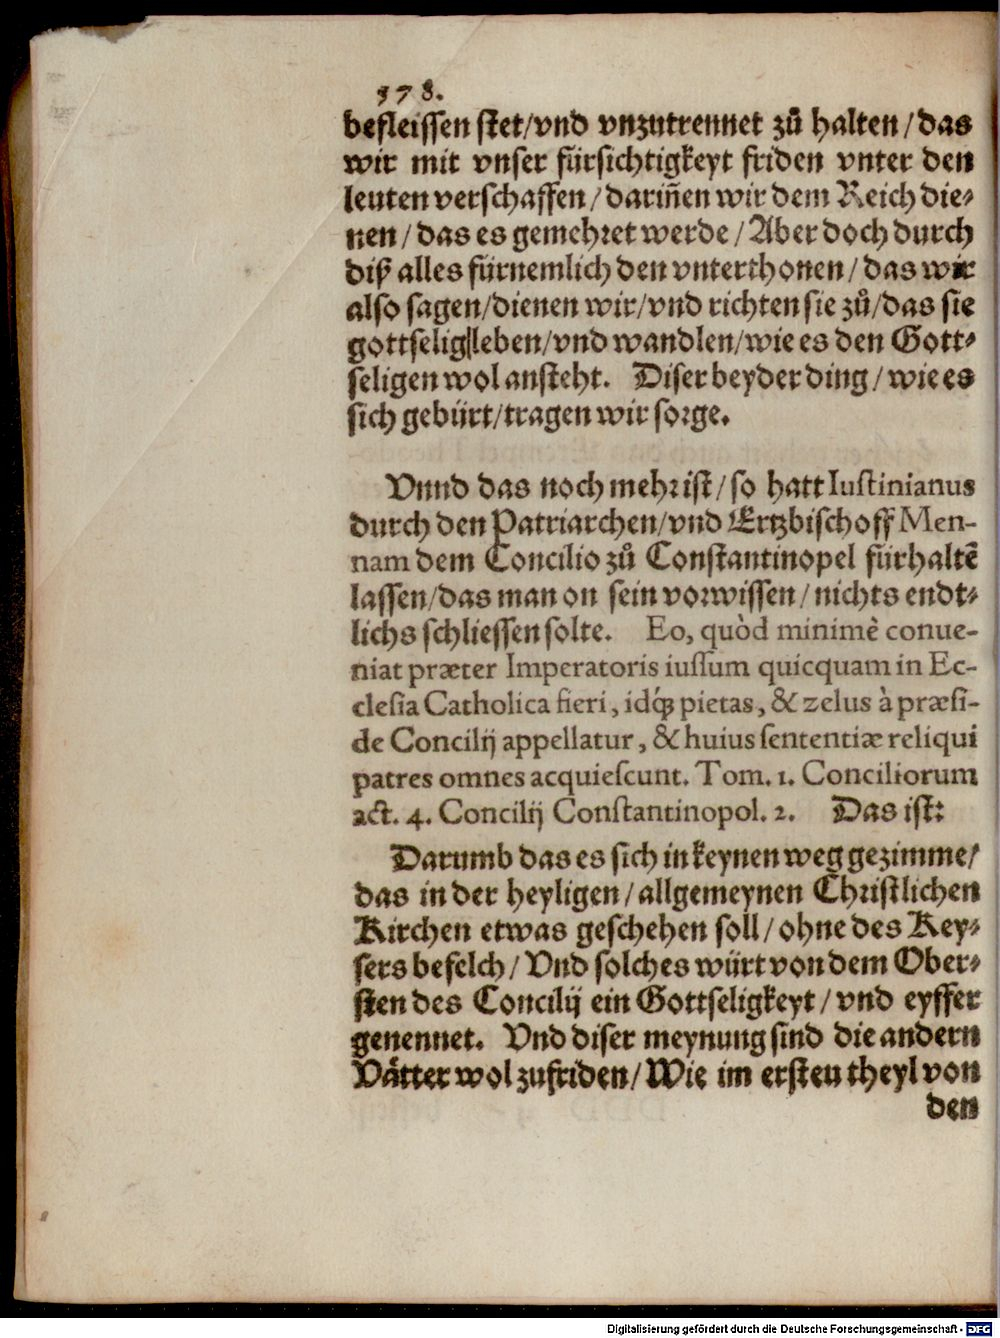 378.
befleissen stet/vnd vnzutrennet zů halten/das
wir mit vnser fürsichtigkeyt friden vnter den
leuten verschaffen/darin̄en wir dem Reich die-
nen/das es gemehret werde/Aber doch durch
diß alles fürnemlich den vnterthonen/das wir
also sagen/dienen wir/vnd richten sie zů/das sie
gottselig leben/vnd wandlen/wie es den Gott-
seligen wol ansteht. Diser beyder ding/wie es
sich gebürt/tragen wir sorge.
Vnnd das noch mehr ist/so hatt Iustinianus
durch den Patriarchen/vnd Ertzbischoff Men-
nam dem Concilio zů Constantinopel fürhaltē
lassen/das man on sein vorwissen/nichts endt-
lichs schliessen solte. Eo, quòd minimè conue-
niat præter Imperatoris iussum quicquam in Ec-
clesia Catholica fieri, idq́; pietas, & zelus à præsi-
de Concilij appellatur, & huius sententiæ reliqui
patres omnes acquiescunt. Tom. 1. Conciliorum
act. 4. Concilij Constantinopol. 2. Das ist:
Darumb das es sich in keynen weg gezimme/
das in der heyligen/allgemeynen Christlichen
Kirchen etwas geschehen soll/ohne des Key-
sers befelch/Vnd solches würt von dem Ober-
sten des Concilij ein Gottseligkeyt/vnd eyffer
genennet. Vnd diser meynung sind die andern
Vätter wol zufriden/Wie im ersten theyl von
den
Digitalisierung gefördert durch die Deutsche Forschungsgemeinschaft - DFG